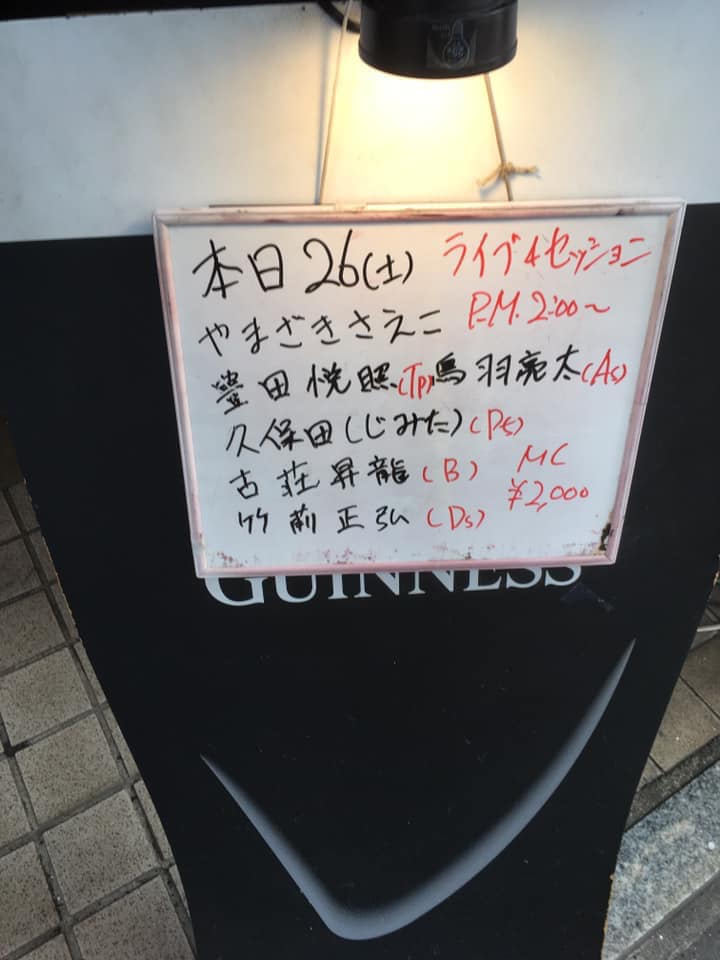 本日26(土) ライブ&セッション
やまざきさえこ P.M. 2:00～
豊田悦照(Tp) 鳥羽亮太(As)
久保田(じみた)(Ps)
古荘昇龍(B) MC
竹前正弘(Ds) ¥2,000
GUINNESS